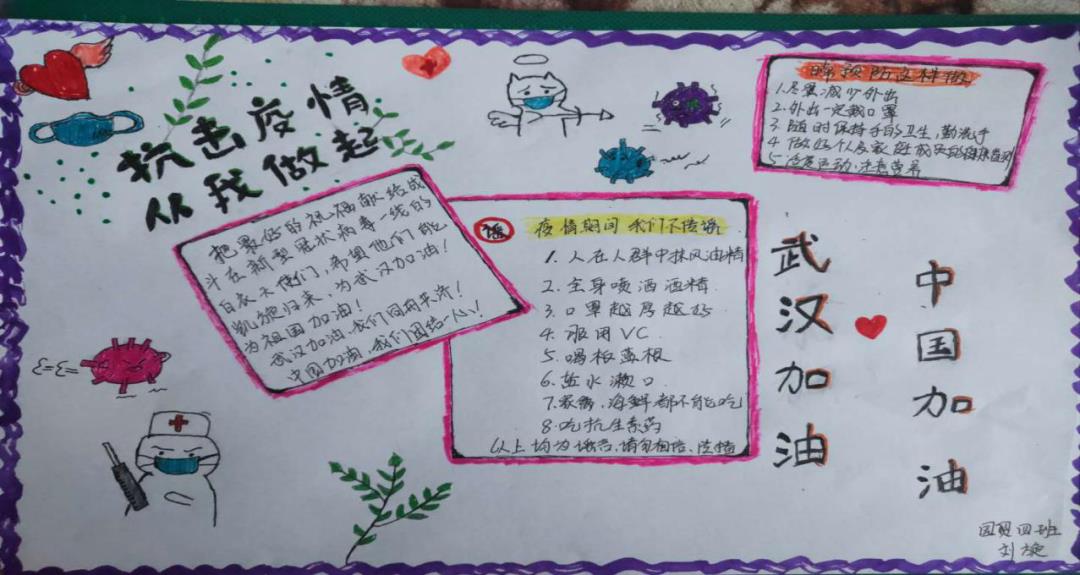 抗击疫情
从我做起
把最好的祝福献给战
斗在新型冠状病毒一线的
白衣天使们，希望他们能
凯旋归来，为武汉加油！
为祖国加油！
武汉加油，我们同舟共济！
中国加油，我们团结一心！
谣
疫情期间 我们不传谣
1. 人在人群中抹风油精
2. 全身喷洒酒精
3. 口罩越厚越好
4. 服用VC
5. 喝板蓝根
6. 盐水漱口
7. 家禽、海鲜都不能吃
8. 吃抗生素药
以上均为谣言，请勿相信、传播
预防这样做
1. 尽量减少外出
2. 外出一定戴口罩
3. 随时保持手的卫生，勤洗手
4 做好个人与家庭成员的健康监测
5 适度运动，注意营养
武汉加油
中国加油
国贸四班
刘旋